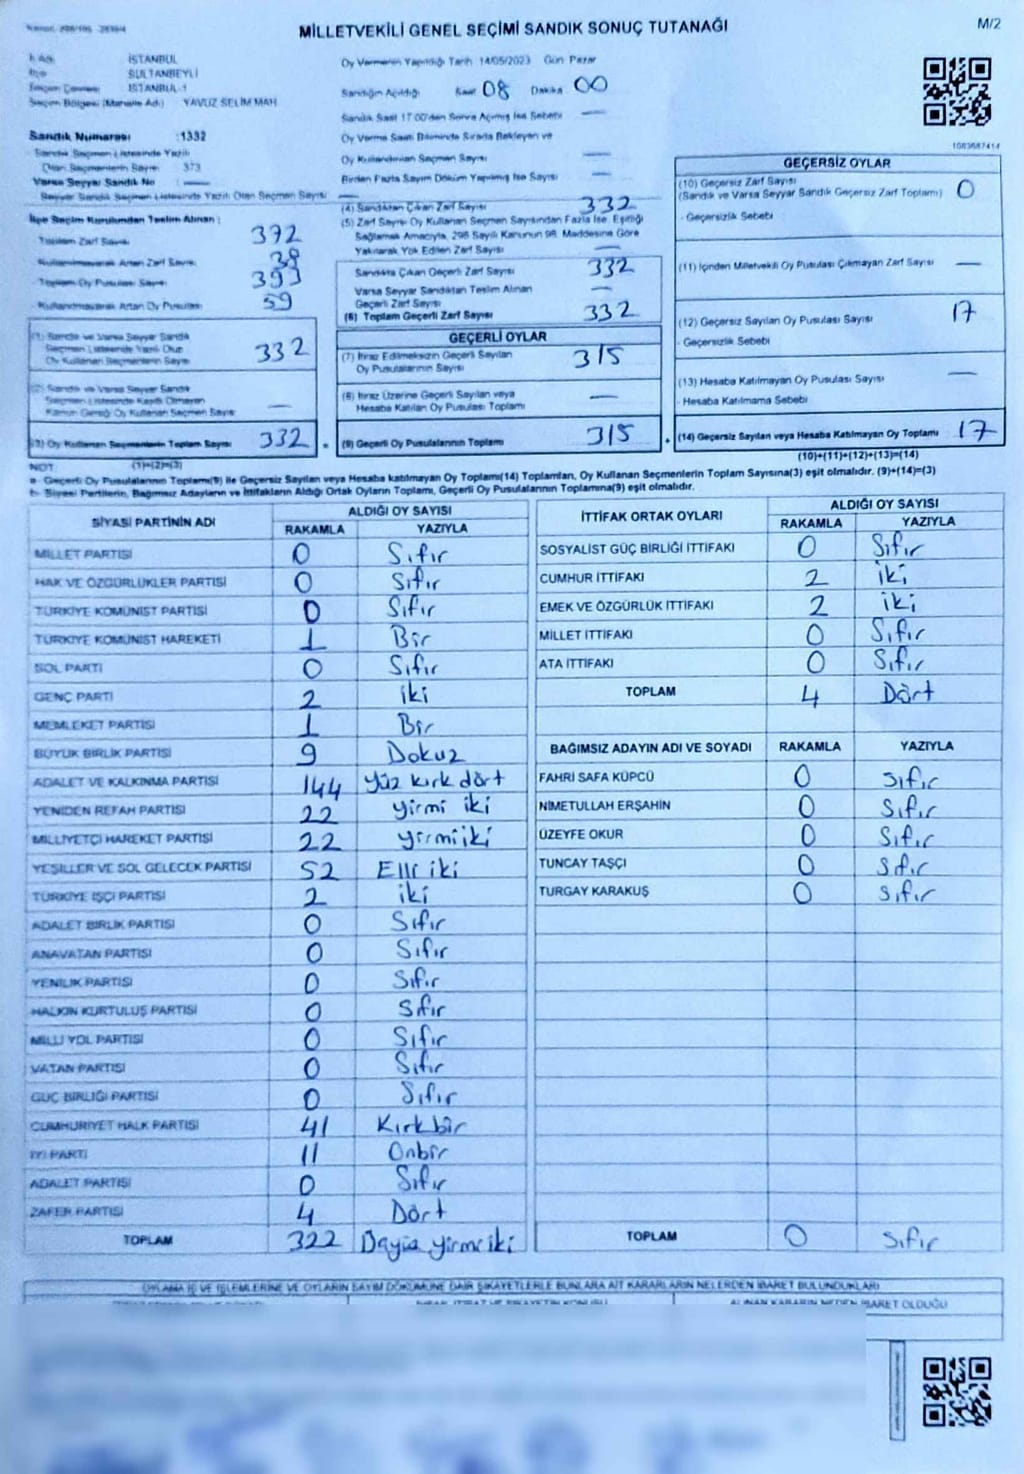 MİLLETVEKİLİ GENEL SEÇİMİ SANDIK SONUÇ TUTANAĞI
M/2
İSTANBUL
SULTANBEYLİ
İSTANBUL-1
Seçim Bölgesi (Mahalle Adı) YAVUZ SELİM MAH.
Sandık Numarası :1332
Sandık Seçmen Listesinde Yazılı
Olan Seçmenlerin Sayısı 373
Varsa Seyyar Sandık No : —
Seyyar Sandık Seçmen Listesinde Yazılı Olan Seçmen Sayısı : —
İlçe Seçim Kurulundan Teslim Alınan :
Toplam Zarf Sayısı 372
Kullanılmayarak Artan Zarf Sayısı
Toplam Oy Pusulası Sayısı
Kullanılmayarak Artan Oy Pusulası 59
(1) Sandık ve Varsa Seyyar Sandık
Seçmen Listesinde Yazılı Olup
Oy Kullanan Seçmenlerin Sayısı 332
(2) Sandık ve Varsa Seyyar Sandık
Seçmen Listesinde Kaydı Olmayan
Kanun Gereği Oy Kullanan Seçmen Sayısı —
(3) Oy Kullanan Seçmenlerin Toplam Sayısı 332
(1)+(2)=(3)
Oy Vermenin Yapıldığı Tarih 14/05/2023 Gün Pazar
Sandığın Açıldığı Saat 08 Dakika 00
Sandık Saat 17:00'den Sonra Açılmış İse Sebebi —
Oy Verme Saati Bitiminde Sırada Bekleyen ve
Oy Kullandırılan Seçmen Sayısı —
Birden Fazla Sayım Döküm Yapılmış İse Sayısı —
(4) Sandıktan Çıkan Zarf Sayısı 332
(5) Zarf Sayısı Oy Kullanan Seçmen Sayısından Fazla İse, Eşitliği
Sağlamak Amacıyla, 298 Sayılı Kanunun 98. Maddesine Göre
Yakılarak Yok Edilen Zarf Sayısı —
Sandıkta Çıkan Geçerli Zarf Sayısı 332
Varsa Seyyar Sandıktan Teslim Alınan
Geçerli Zarf Sayısı —
(6) Toplam Geçerli Zarf Sayısı 332
GEÇERLİ OYLAR
(7) İtiraz Edilmeksizin Geçerli Sayılan
Oy Pusulalarının Sayısı 315
(8) İtiraz Üzerine Geçerli Sayılan veya
Hesaba Katılan Oy Pusulası Toplamı —
(9) Geçerli Oy Pusulalarının Toplamı 315
1083687414
GEÇERSİZ OYLAR
(10) Geçersiz Zarf Sayısı
(Sandık ve Varsa Seyyar Sandık Geçersiz Zarf Toplamı) 0
- Geçersizlik Sebebi
(11) İçinden Milletvekili Oy Pusulası Çıkmayan Zarf Sayısı —
(12) Geçersiz Sayılan Oy Pusulası Sayısı 17
- Geçersizlik Sebebi
(13) Hesaba Katılmayan Oy Pusulası Sayısı —
- Hesaba Katılmama Sebebi
(14) Geçersiz Sayılan veya Hesaba Katılmayan Oy Toplamı 17
(10)+(11)+(12)+(13)=(14)
NOT:
a- Geçerli Oy Pusulalarının Toplamı(9) ile Geçersiz Sayılan veya Hesaba katılmayan Oy Toplamı(14) Toplamları, Oy Kullanan Seçmenlerin Toplam Sayısına(3) eşit olmalıdır. (9)+(14)=(3)
b- Siyasi Partilerin, Bağımsız Adayların ve İttifakların Aldığı Ortak Oyların Toplamı, Geçerli Oy Pusulalarının Toplamına(9) eşit olmalıdır.
SİYASİ PARTİNİN ADI ALDIĞI OY SAYISI
RAKAMLA YAZIYLA
MİLLET PARTİSİ 0 Sıfır
HAK VE ÖZGÜRLÜKLER PARTİSİ 0 Sıfır
TÜRKİYE KOMÜNİST PARTİSİ 0 Sıfır
TÜRKİYE KOMÜNİST HAREKETİ 1 Bir
SOL PARTİ 0 Sıfır
GENÇ PARTİ 2 iki
MEMLEKET PARTİSİ 1 Bir
BÜYÜK BİRLİK PARTİSİ 9 Dokuz
ADALET VE KALKINMA PARTİSİ 144 Yüz kırk dört
YENİDEN REFAH PARTİSİ 22 yirmi iki
MİLLİYETÇİ HAREKET PARTİSİ 22 yirmi iki
YEŞİLLER VE SOL GELECEK PARTİSİ 52 Elli iki
TÜRKİYE İŞÇİ PARTİSİ 2 iki
ADALET BİRLİK PARTİSİ 0 Sıfır
ANAVATAN PARTİSİ 0 Sıfır
YENİLİK PARTİSİ 0 Sıfır
HALKIN KURTULUŞ PARTİSİ 0 Sıfır
MİLLİ YOL PARTİSİ 0 Sıfır
VATAN PARTİSİ 0 Sıfır
GÜÇ BİRLİĞİ PARTİSİ 0 Sıfır
CUMHURİYET HALK PARTİSİ 41 Kırkbir
İYİ PARTİ 11 Onbir
ADALET PARTİSİ 0 Sıfır
ZAFER PARTİSİ 4 Dört
TOPLAM 322 yirmi iki
İTTİFAK ORTAK OYLARI ALDIĞI OY SAYISI
RAKAMLA YAZIYLA
SOSYALİST GÜÇ BİRLİĞİ İTTİFAKI 0 Sıfır
CUMHUR İTTİFAKI 2 iki
EMEK VE ÖZGÜRLÜK İTTİFAKI 2 iki
MİLLET İTTİFAKI 0 Sıfır
ATA İTTİFAKI 0 Sıfır
TOPLAM 4 Dört
BAĞIMSIZ ADAYIN ADI VE SOYADI RAKAMLA YAZIYLA
FAHRİ SAFA KÜPCÜ 0 Sıfır
NİMETULLAH ERŞAHİN 0 Sıfır
ÜZEYFE OKUR 0 Sıfır
TUNCAY TAŞÇI 0 Sıfır
TURGAY KARAKUŞ 0 Sıfır
TOPLAM 0 Sıfır
OYLAMA İŞ VE İŞLEMLERİNE VE OYLARIN SAYIM DÖKÜMÜNE DAİR ŞİKAYETLERLE BUNLARA AİT KARARLARIN NELERDEN İBARET BULUNDUKLARI
ALINAN KARARIN NEDEN İBARET OLDUĞU